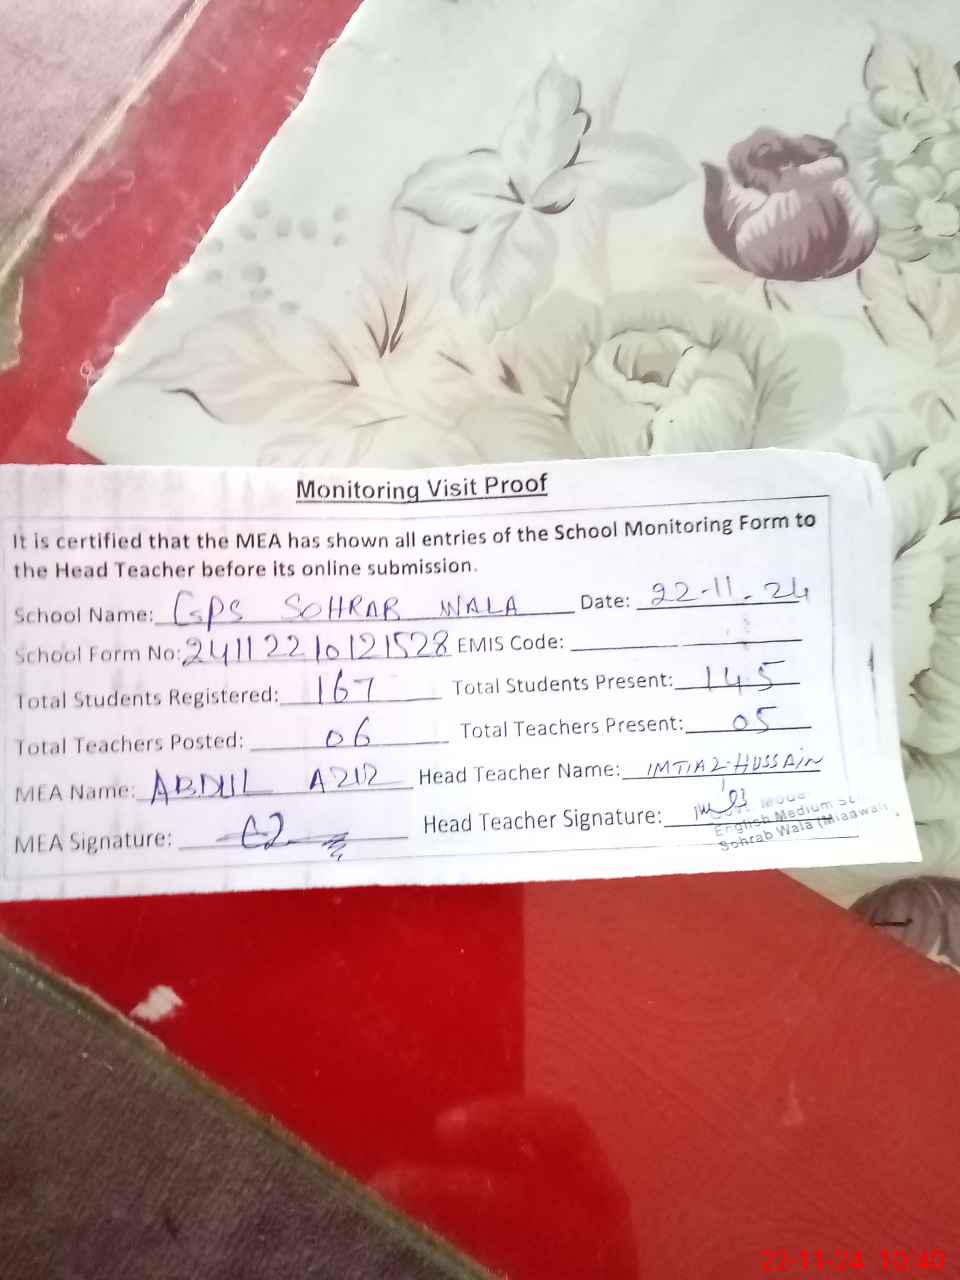 Monitoring Visit Proof
It is certified that the MEA has shown all entries of the School Monitoring Form to
the Head Teacher before its online submission.
School Name: GPS SOHRAB WALA Date: 22-11-24
School Form No: 24112210121528 EMIS Code:
Total Students Registered: 167 Total Students Present: 145
Total Teachers Posted: 06 Total Teachers Present: 05
MEA Name: ABDUL AZIZ Head Teacher Name: IMTIAZ HUSSAIN
MEA Signature: Head Teacher Signature:
English Medium
Sohrab Wala (Mianwali)
22-11-24 10:40